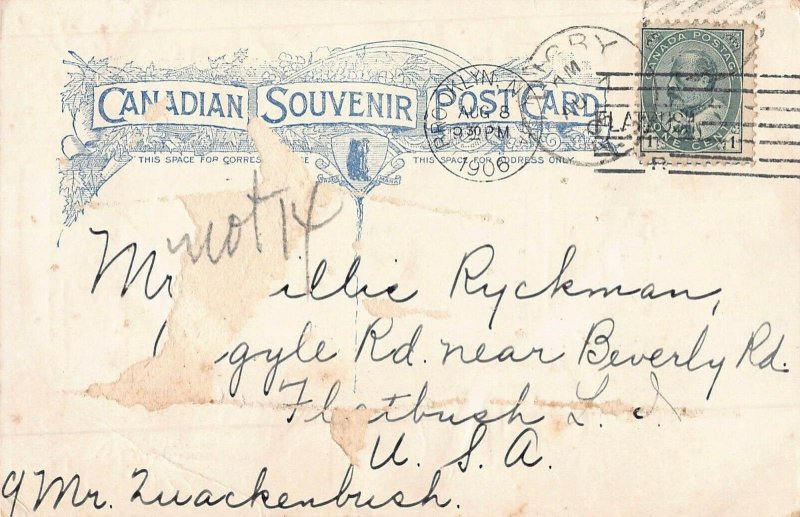 CANADIAN SOUVENIR POST CARD
THIS SPACE FOR CORRES CE
THIS SPACE FOR ADDRESS ONLY
BROOKLYN, N.Y.
AUG 8
9 30 PM
1906
GBY
AM
AU
CANADA POSTAGE
1 ONE CENT 1
not 14
Mr illie Ryckman,
gyle Rd. near Beverly Rd.
Fl tbush L. I.
U. S. A.
℅ Mr. Quackenbush.